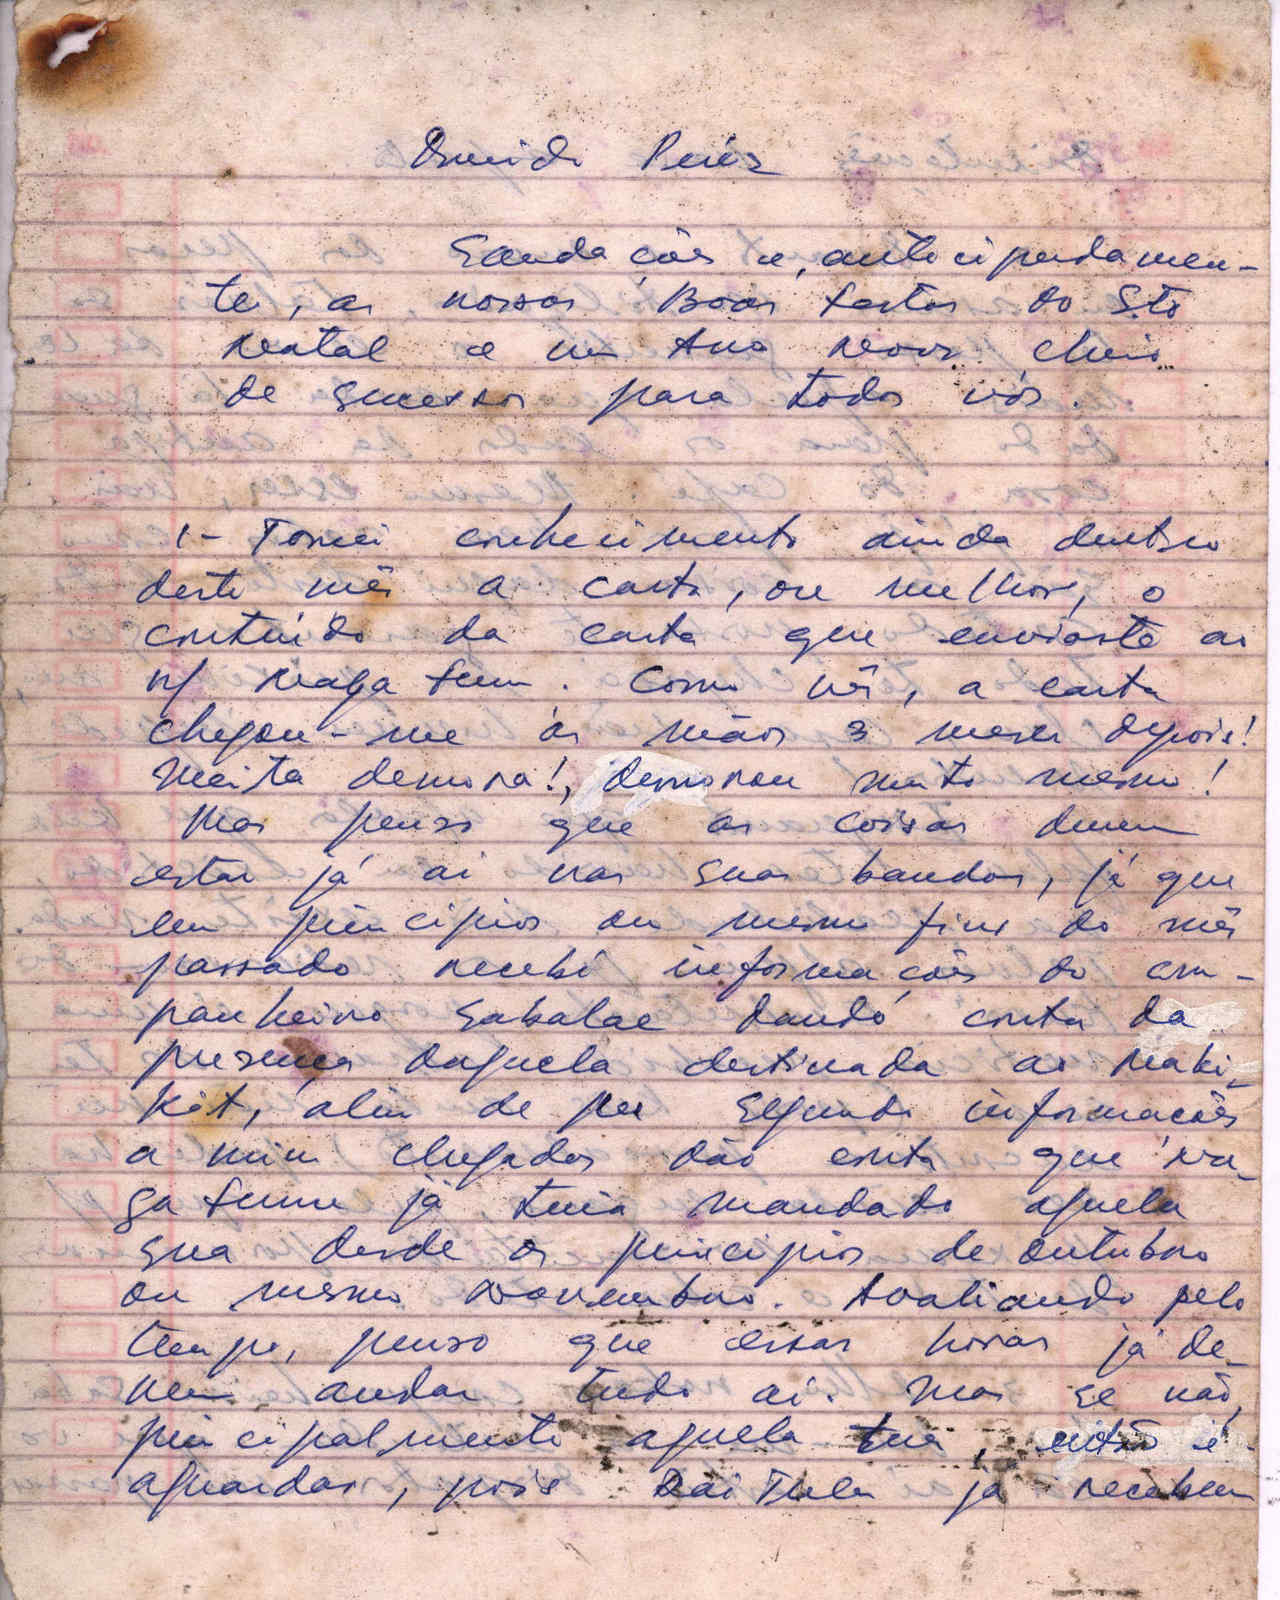 Saudações e, antecipadamen-
te, as nossas Boas festas do S.to
Natal e um Ano Novo cheio
de sucessos para todos vós.
1- Tomei conhecimento ainda dentro
deste mês a carta, ou melhor, o
conteúdo da carta que enviaste ao
n/ Nagafum. Como vês, a carta
chegou-me às mãos 3 meses depois!
Muita demora!, demorou muito mesmo!
Mas penso que as coisas devem
estar já aí nas suas bandas, já que
em princípios ou mesmo fins do mês
passado recebi informações do com-
panheiro Sabalae dando conta da
presença daquela destinada ao Maki-
kit, além de que segundo informacões
a mim chegados dão conta que Na-
gafum já tinha mandado aquela
sua desde os princípios de Outubro
ou mesmo Novembro. Avaliando pelo
tempo, penso que essas horas já de-
vem andar tudo aí. Mas se não,
principalmente aquela tua, então é
aguardar, pois DaiTula já recebeu